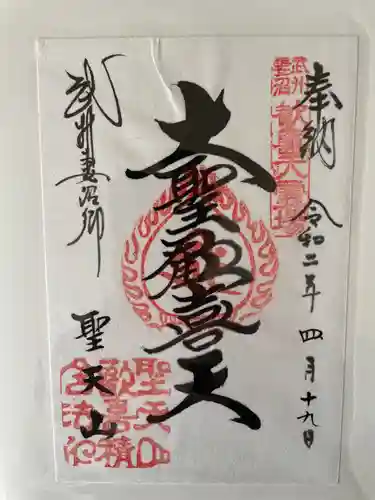 奉納
令和二年四月十九日
武州妻沼
歓喜天霊場
大聖歓喜天
武州妻沼郷
聖天山